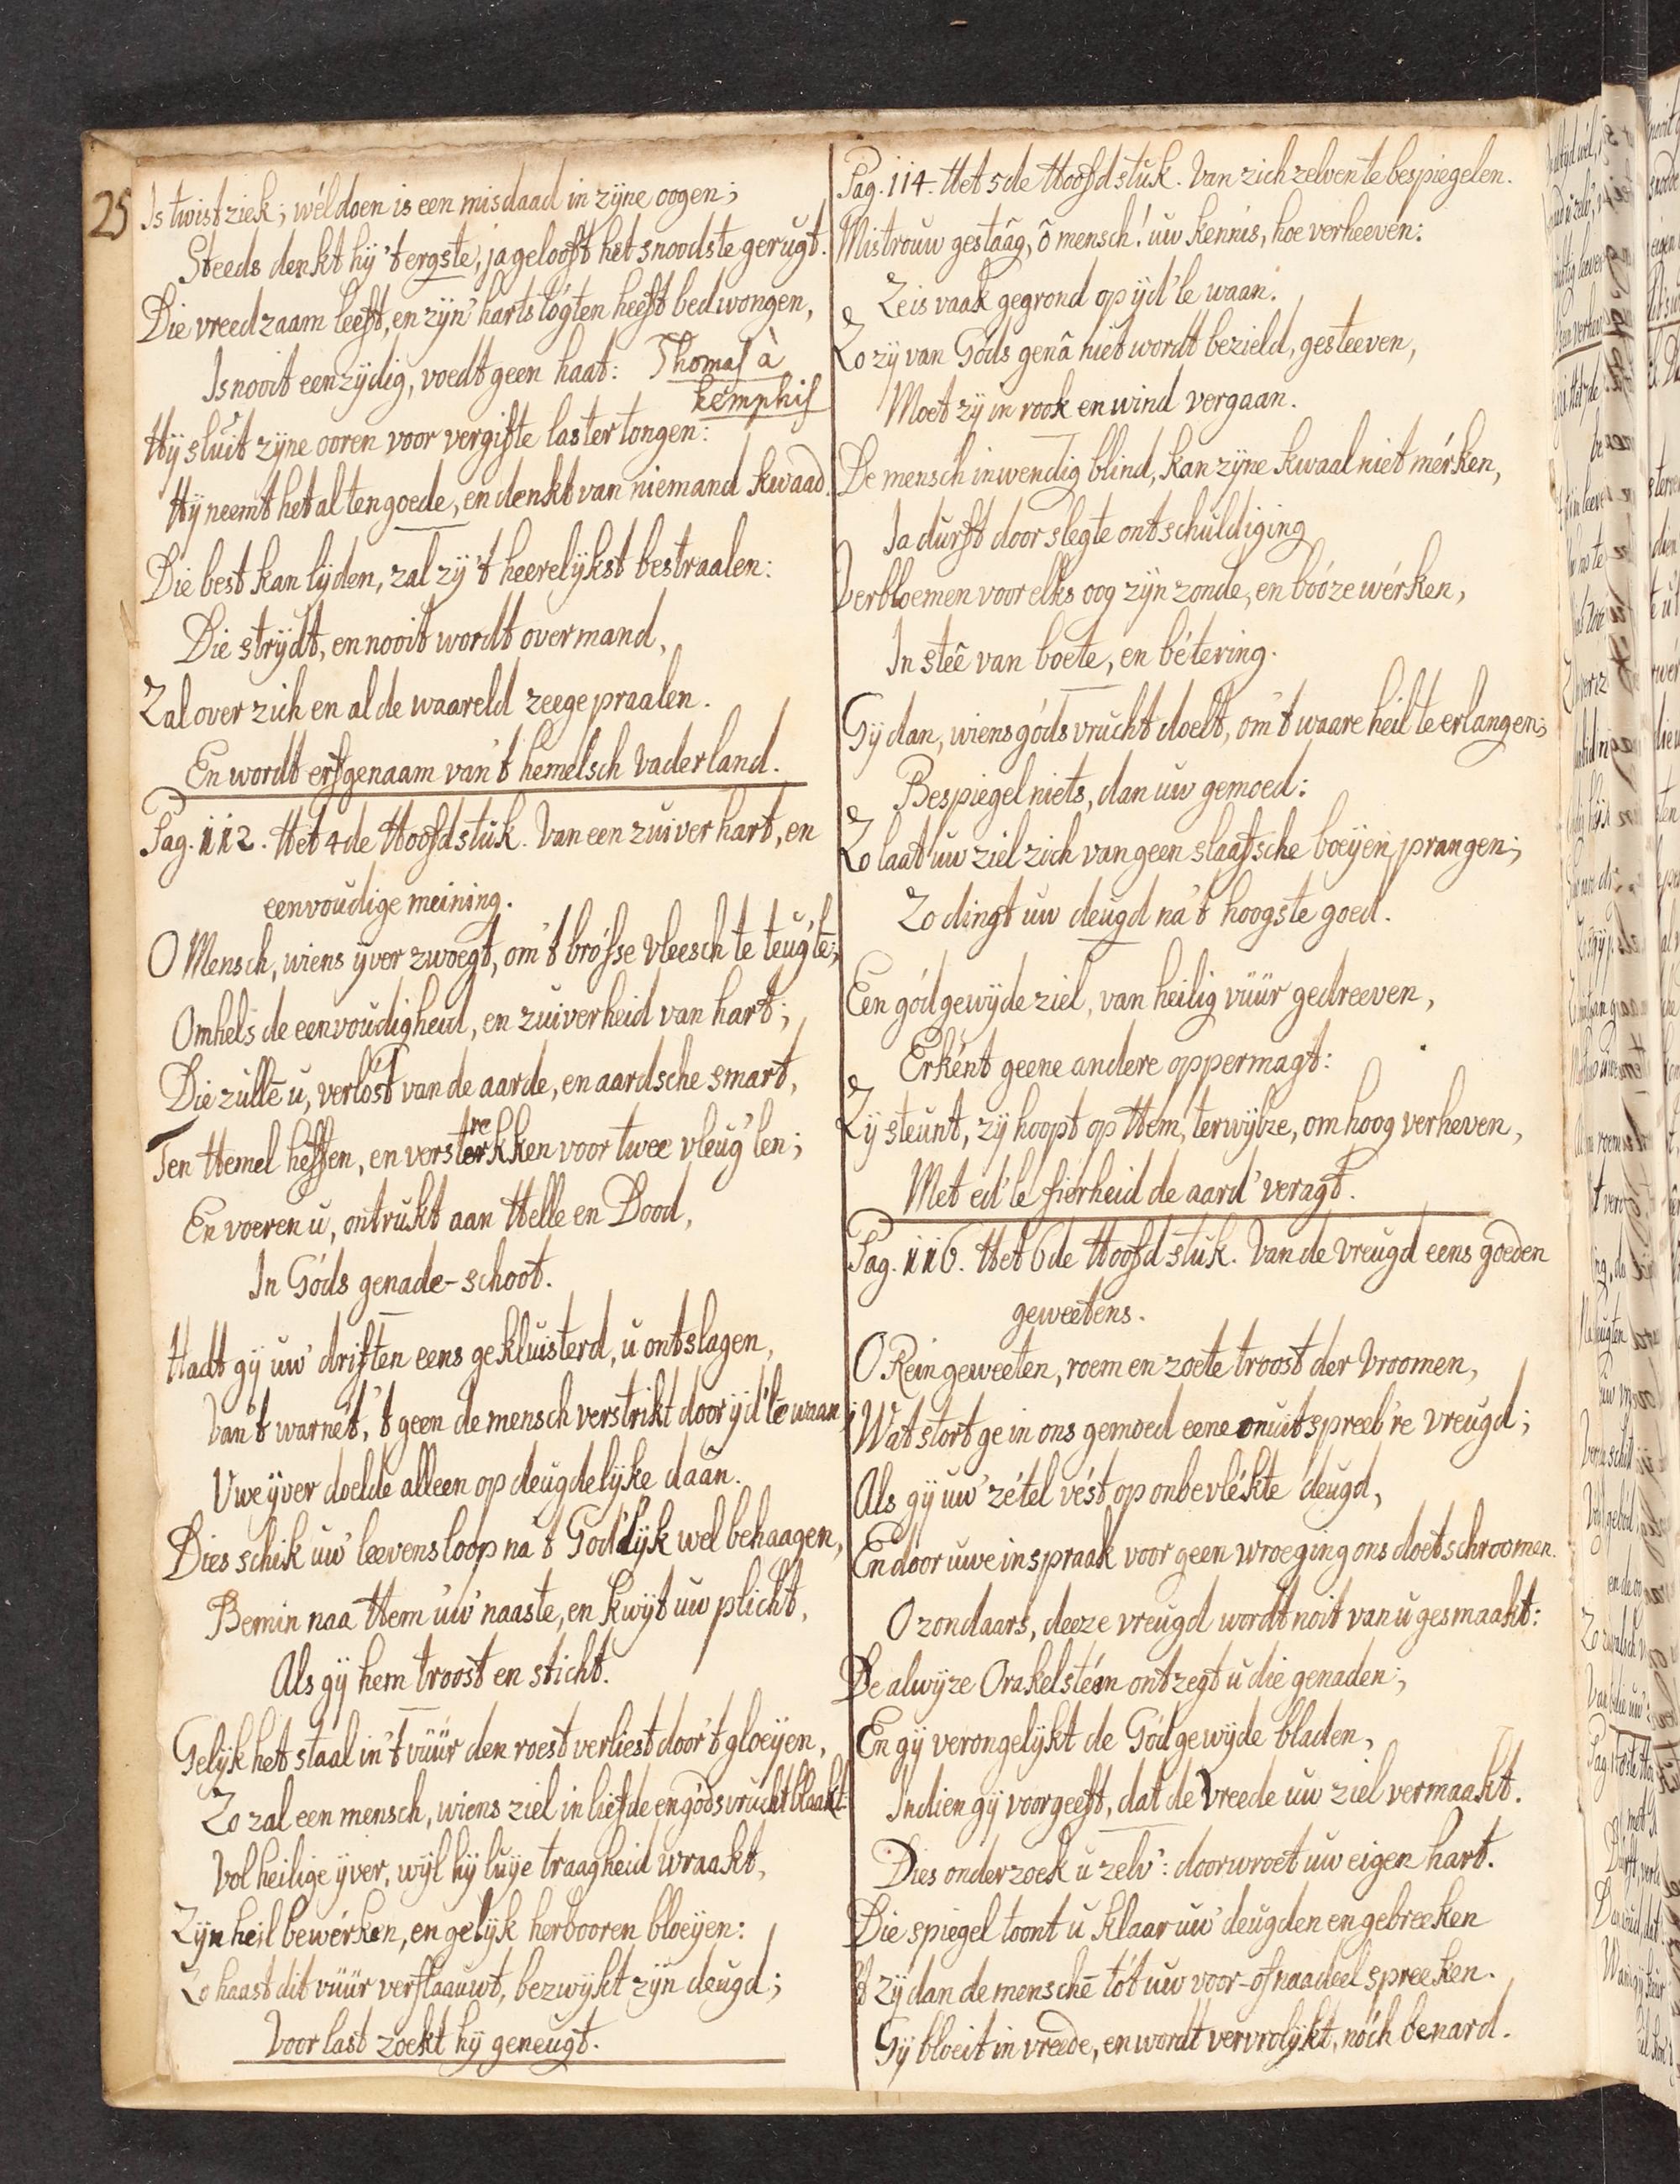 25
Is twistziek; wél doen is een misdaad in zijne oogen;
Steeds denkt hij 't ergste, ja gelooft het snoodste gerugt.
Die vreedzaam leeft, en zijn' hartslógten heeft bedwongen,
Is nooit eenzijdig, voedt geen haat: Thomas à
kemphis
Hij sluit zijne ooren voor vergifte lastertongen:
Hij neemt het al ten goede, en denkt van niemand kwaad.
Die best kan lijden, zal zy 't heerelijkst bestraalen:
Die strydt, en nooit wordt overmand,
Zal over zich en al de waareld zeegepraalen.
En wordt erfgenaam van 't hemelsch vaderland.
Pag. 112. Het 4de Hoofdstuk. Van een zuiver hart, en
eenvoudige meining.
O Mensch, wiens yver zwoegt, om 't brósse vleesch te teug'lē;
Omhels de eenvoudigheid, en zuiverheid van hart;
Die zullē u, verlóst van de aarde, en aardsche smart,
Ten Hemel heffen, en versterkken voor twee vleug'len;
re
En voeren u, ontrukt aan Helle en Dood,
In Góds genade-schoot.
Hadt gy uw' driften eens gekluisterd, u ontslagen,
Van 't warnét, 't geen de mensch verstrikt door yd'lē waan;
Uwe yver doelde alleen op deugdelyke daân.
Dies schik uw' leevensloop na 't God'lyk wel behaagen,
Bemin naa Hem uw' naaste, en kwyt uw plicht,
Als gy hem troost en sticht.
Gelyk het staal in 't vüür den roest verliest door 't gloeijen,
Zo zal een mensch, wiens ziel in liefde en gódsvrucht blaakt
Vol heilige yver, wyl hy luije traagheid wraakt,
Zyn heil bewérken, en gelyk herbooren bloeijen:
Zo haast dit vüür verflaauwt, bezwykt zyn deugd;
Voor last zoekt hy geneugt.
Pag. 114. Het 5de Hoofdstuk. Van zich zelven te bespiegelen.
Mistrouw gestaâg, ô mensch! uw kennis, hoe verheeven:
Ze is vaak gegrond op yd'le waan.
Zo zy van Góds genâ niet wordt bezield, gesteeven,
Moet zy in rook en wind vergaan.
De mensch inwendig blind, kan zyne kwaal niet mérken,
Ja durft door slegte ontschuldiging
Verbloemen voor elks oog zyn zonde, en booze wérken,
In steê van boete, en bétering.
Gy dan, wiens gódsvrucht doelt, om 't waare heil te erlangen;
Bespiegel niets, dan uw gemoed:
Zo laat uw ziel zich van geen slaafsche boeijen prangen;
Zo dingt uw deugd na 't hoogste goed.
Een gódgewyde ziel, van heilig vüür gedreeven,
Erként geene andere oppermagt:
Zy steunt, zy hoopt op Hem, terwylze, om hoog verheven,
Met ed'le fierheid de aard' veragt.
Pag. 116. Het 6de Hoofdstuk. Van de vreugd eens goeden
geweetens.
O Rein geweeten, roem en zoete troost der vroomen,
Wat stort ge in ons gemoed eene onuitspreeb're vreugd;
Als gy uw' zétel vést op onbevlékte deugd,
En door uwe inspraak voor geen wroeging ons doet schroomen.
O zondaars, deeze vreugd wordt noit van u gesmaakt:
De alwyze Orakelstém ontzegt u die genaden;
En gy verongelykt de Gódgewyde bladen,
Indien gy voorgeeft, dat de vreede uw ziel vermaakt.
Dies onderzoek u zelv': doorwroet uw eigen hart.
Die spiegel toont u klaar uw' deugden en gebreeken
't zy dan de menschē tót uw voor-of naadeel spreeken.
Gy bloeit in vreede, en wordt vervrolykt, nóch benard.